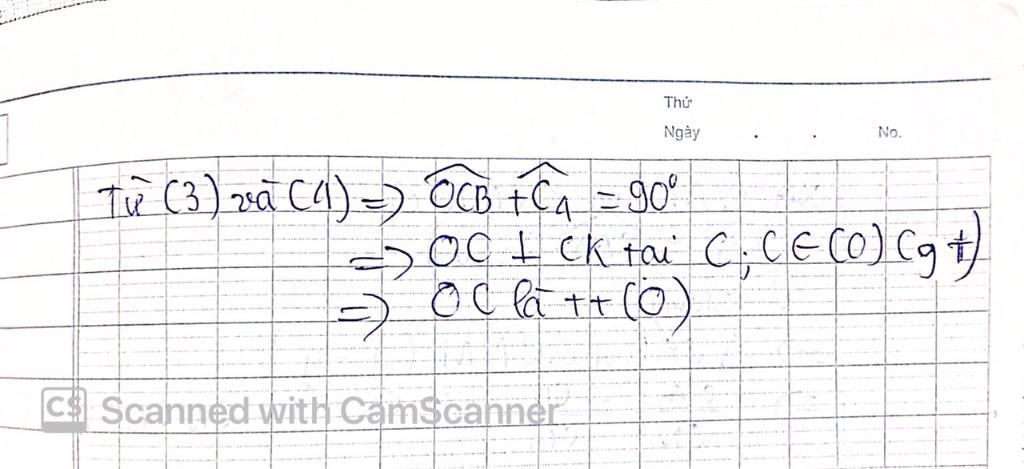 Thứ
Ngày . . No.
Từ (3) và (4) => OCB + C₁ = 90⁰
=> OC ⊥ CK tại C; C ∈ (O) (gt)
=> OC là tt (O)
CS Scanned with CamScanner